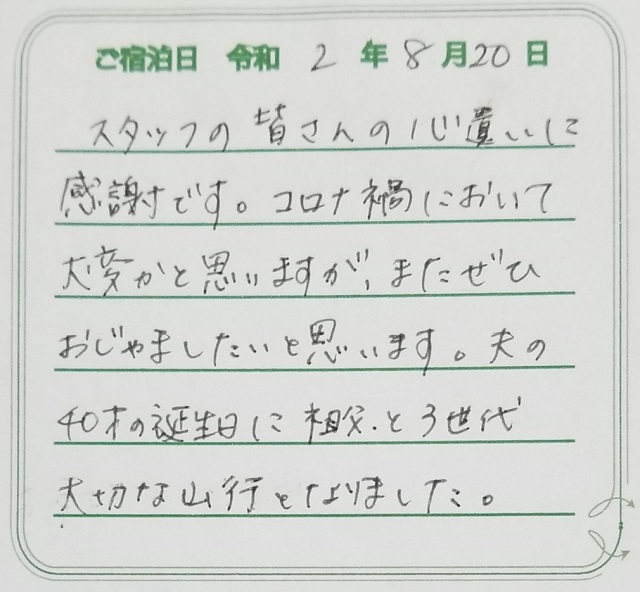 ご宿泊日 令和 2 年 8 月 20 日
スタッフの皆さんの心遣いに
感謝です。コロナ禍において
大変かと思いますが、またぜひ
おじゃましたいと思います。夫の
40才の誕生日に祖父と3世代
大切な山行となりました。